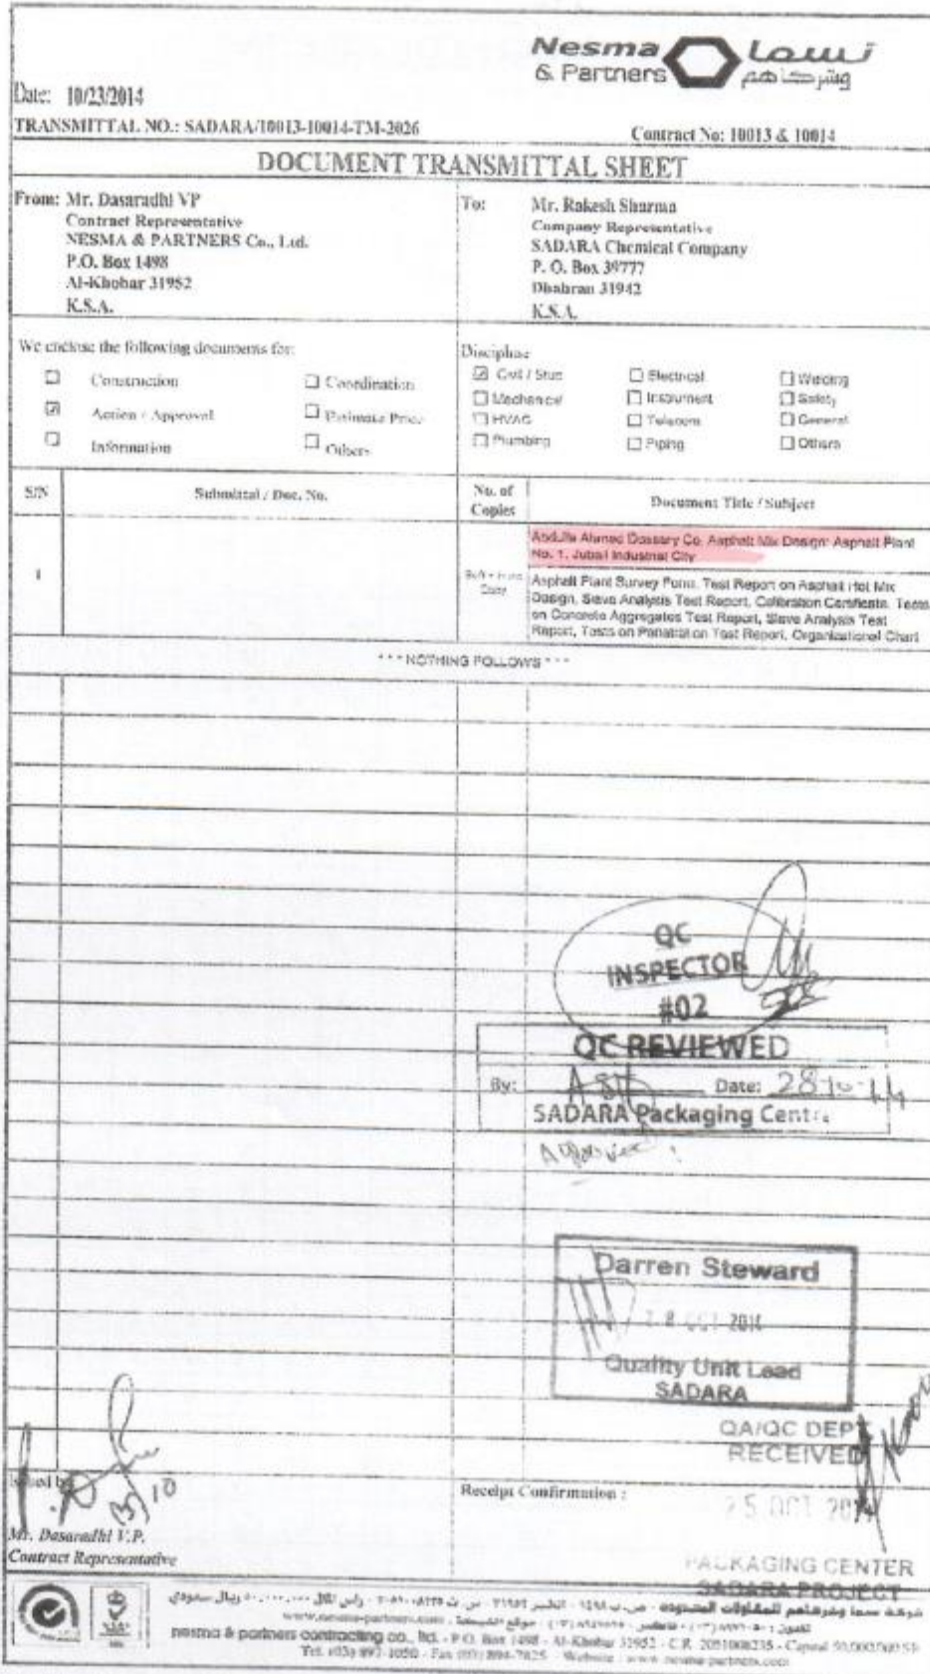 Nesma
& Partners
نسما
وشركاهم
Date: 10/23/2014
TRANSMITTAL NO.: SADARA/10013-10014-TM-2026
Contract No: 10013 & 10014
DOCUMENT TRANSMITTAL SHEET
From: Mr. Dasaradhi VP
Contract Representative
NESMA & PARTNERS Co., Ltd.
P.O. Box 1498
Al-Khobar 31952
K.S.A.
To: Mr. Rakesh Sharma
Company Representative
SADARA Chemical Company
P. O. Box 39777
Dhahran 31942
K.S.A.
We enclose the following documents for:
Construction
Coordination
Action / Approval
Estimate Price
Information
Others
Discipline
Civil / Struc
Electrical
Welding
Mechanical
Instrument
Safety
HVAC
Telecom
General
Plumbing
Piping
Others
S/N
Submittal / Doc. No.
No. of
Copies
Document Title / Subject
Abdulla Ahmed Dossary Co. Asphalt Mix Design: Asphalt Plant
No. 1, Jubail Industrial City
1
Copy
Asphalt Plant Survey Form, Test Report on Asphalt Hot Mix
Design, Sieve Analysis Test Report, Calibration Certificate, Tests
on Concrete Aggregates Test Report, Sieve Analysis Test
Report, Tests on Penetration Test Report, Organizational Chart
*** NOTHING FOLLOWS ***
QC
INSPECTOR
#02
QC REVIEWED
By: Date: 28-10-14
SADARA Packaging Centre
Approved
Darren Steward
28 OCT 2014
Quality Unit Lead
SADARA
QA/QC DEPT
RECEIVED
25 OCT 2014
PACKAGING CENTER
SADARA PROJECT
Issued by
Mr. Dasaradhi V.P.
Contract Representative
Receipt Confirmation :
nesma & partners contracting co., ltd. - P.O. Box 1498 - Al-Khobar 31952 - C.R. 2051008235 - Capital 50,000,000 SR
Website : www.nesma-partners.com